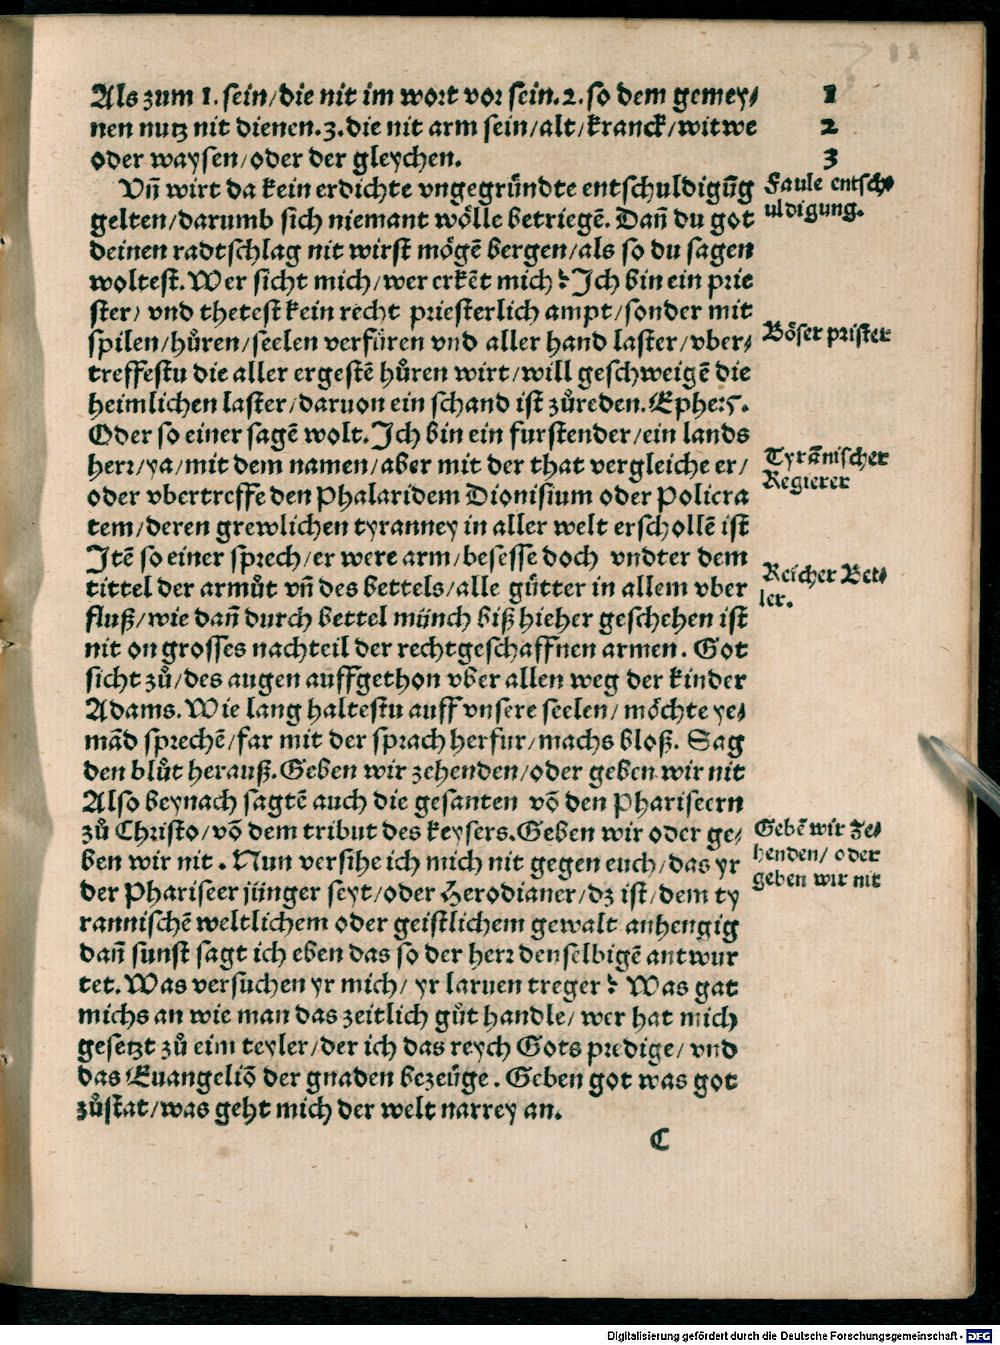 Als zum 1. sein/die nit im wort vor sein. 2. so dem gemey/
nen nutz nit dienen. 3. die nit arm sein/alt/kranck/witwe
oder waysen/oder der gleychen.
1
2
3
Vñ wirt da kein erdichte vngegründte entschuldigũg
gelten/darumb sich niemant wölle betriegẽ. Dañ du got
deinen radtschlag nit wirst mögẽ bergen/als so du sagen
woltest. Wer sicht mich/wer erkẽt mich? Ich bin ein prie
ster/ vnd thetest kein recht priesterlich ampt/sonder mit
spilen/hůren/seelen verfüren vnd aller hand laster/vber/
treffestu die aller ergestẽ hůren wirt/will geschweigẽ die
heimlichen laster/daruon ein schand ist zůreden. Ephe: 5.
Oder so einer sagẽ wolt. Ich bin ein furstender/ein lands
herr/ya/mit dem namen/aber mit der that vergleiche er/
oder vbertreffe den Phalaridem Dionisium oder Policra
tem/deren grewlichen tyranney in aller welt erschollẽ ist
Itẽ so einer sprech/er were arm/besesse doch vndter dem
tittel der armůt vñ des bettels/alle gütter in allem vber
fluß/wie dañ durch bettel münch biß hieher geschehen ist
nit on grosses nachteil der rechtgeschaffnen armen. Got
sicht zů/des augen auffgethon vber allen weg der kinder
Adams. Wie lang haltestu auff vnsere seelen/ möchte ye/
mãd sprechẽ/far mit der sprach herfur/machs bloß. Sag
den blůt herauß. Geben wir zehenden/oder geben wir nit
Also beynach sagtẽ auch die gesanten võ den Phariseern
zů Christo/võ dem tribut des keysers. Geben wir oder ge/
ben wir nit. Nun versihe ich mich nit gegen euch/das yr
der Phariseer jünger seyt/oder Herodianer/dz ist/dem ty
rannischẽ weltlichem oder geistlichem gewalt anhengig
dañ sunst sagt ich eben das so der herr denselbigẽ antwur
tet. Was versuchen yr mich/ yr laruen treger? Was gat
michs an wie man das zeitlich gůt handle/ wer hat mich
gesetzt zů eim teyler/der ich das reych Gots predige/ vnd
das Euangeliõ der gnaden bezeüge. Geben got was got
zůstat/was geht mich der welt narrey an.
C
Faule entsch/
uldigung.
Böser prister
Tyrãnischer
Regierer
Reicher Bet/
ler.
Gebẽ wir Ze/
henden/ oder
geben wir nit
Digitalisierung gefördert durch die Deutsche Forschungsgemeinschaft - DFG